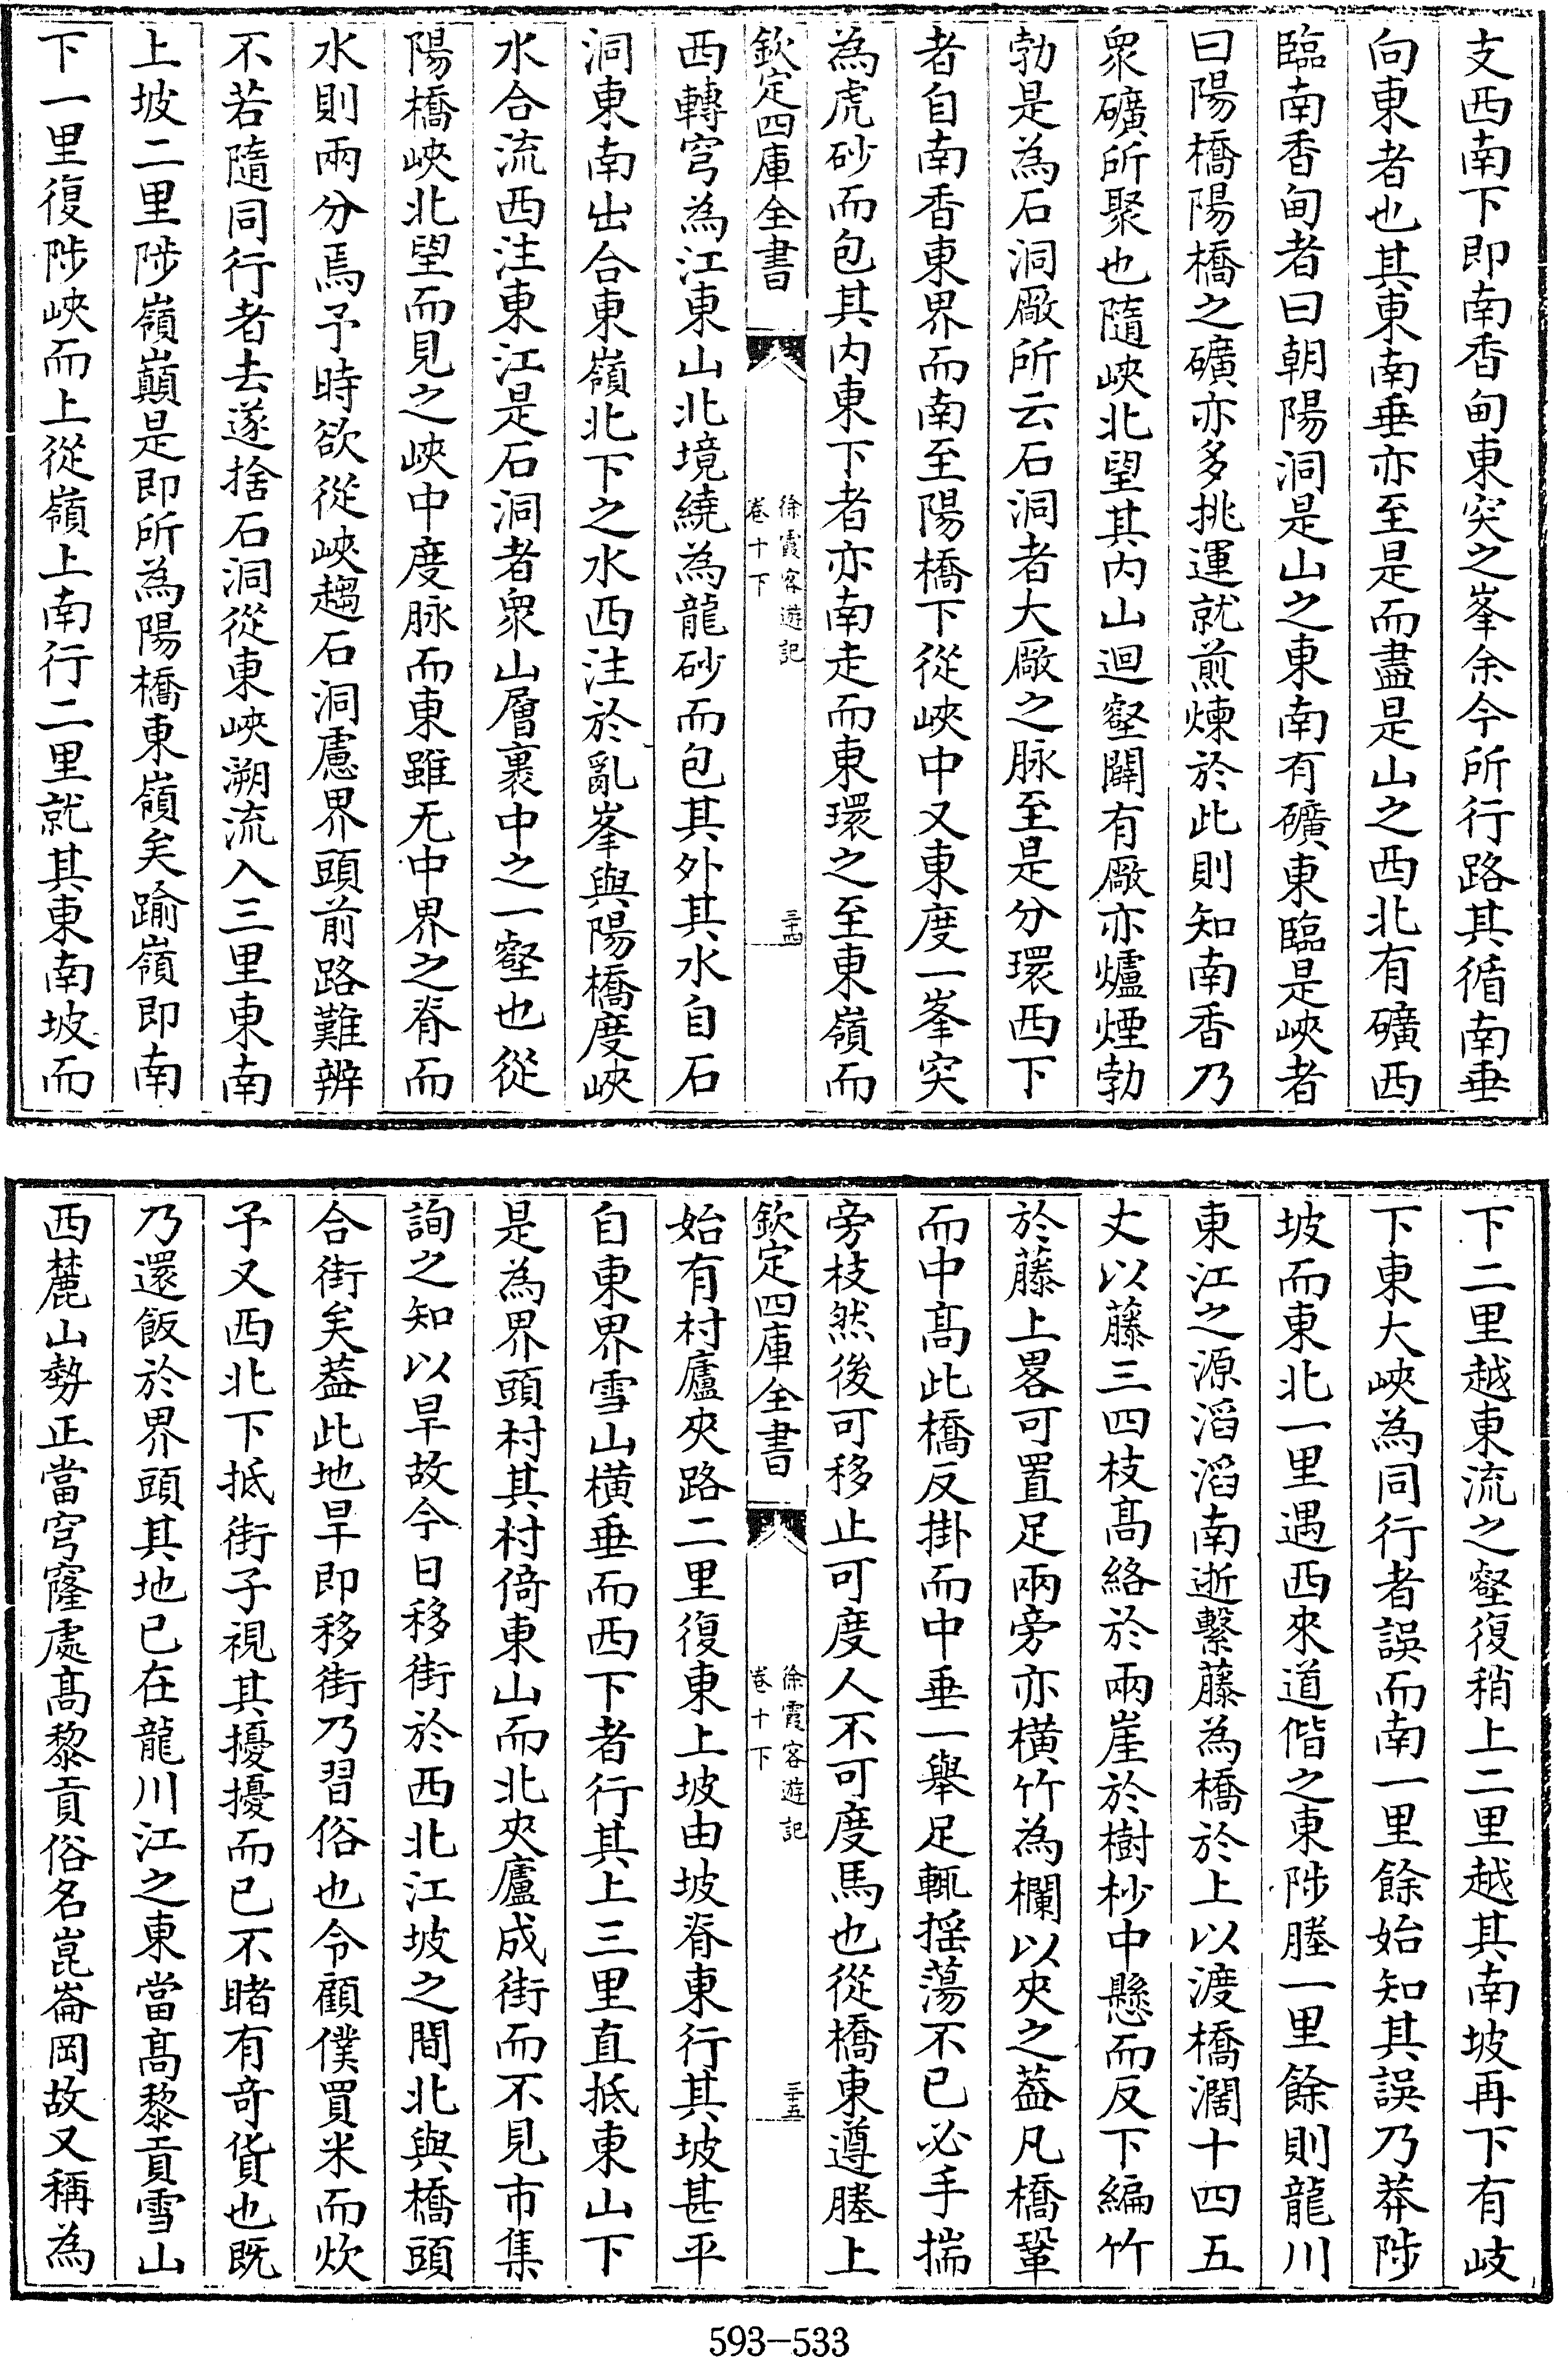 支西南下即南香甸東突之峯余今所行路其循南垂
向東者也其東南垂亦至是而盡是山之西北有礦西
臨南香甸者曰朝陽洞是山之東南有礦東臨是峽者
曰陽橋陽橋之礦亦多挑運就煎煉於此則知南香乃
衆礦所聚也隨峽北望其内山迴壑闢有廠亦爐煙勃
勃是為石洞廠所云石洞者大廠之脉至是分環西下
者自南香東界而南至陽橋下從峽中又東度一峯突
為虎砂而包其内東下者亦南走而東環之至東嶺而
欽定四庫全書
徐霞客遊記
卷十下
三十四
西轉穹為江東山北境繞為龍砂而包其外其水自石
洞東南出合東嶺北下之水西注於亂峯與陽橋度峽
水合流西注東江是石洞者衆山層裹中之一壑也從
陽橋峽北望而見之峽中度脉而東雖无中界之脊而
水則兩分焉予時欲從峽趨石洞慮界頭前路難辨
不若隨同行者去遂捨石洞從東峽溯流入三里東南
上坡二里陟嶺巔是即所為陽橋東嶺矣踰嶺即南
下一里復陟峽而上從嶺上南行二里就其東南坡而
下二里越東流之壑復稍上二里越其南坡再下有岐
下東大峽為同行者誤而南一里餘始知其誤乃莽陟
坡而東北一里遇西來道偕之東陟塍一里餘則龍川
東江之源滔滔南逝繫藤為橋於上以渡橋濶十四五
丈以藤三四枝高絡於兩崖於樹杪中懸而反下編竹
於藤上畧可置足兩旁亦横竹為欄以夾之葢凡橋鞏
而中高此橋反掛而中垂一舉足輒揺蕩不已必手揣
旁枝然後可移止可度人不可度馬也從橋東遵塍上
欽定四庫全書
徐霞客遊記
卷十下
三十五
始有村廬夾路二里復東上坡由坡脊東行其坡甚平
自東界雪山横垂而西下者行其上三里直抵東山下
是為界頭村其村倚東山而北夾廬成街而不見市集
詢之知以旱故今日移街於西北江坡之間北與橋頭
合街矣葢此地旱即移街乃習俗也令顧僕買米而炊
予又西北下抵街子視其擾擾而已不睹有奇貨也既
乃還飯於界頭其地已在龍川江之東當高黎貢雪山
西麓山勢正當穹窿處高黎貢俗名崑崙岡故又稱為
593-533